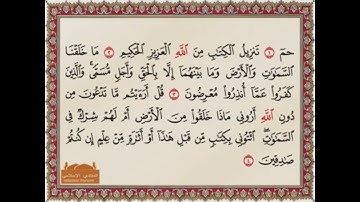 حمٓ ١ تَنزِيلُ ٱلْكِتَٰبِ مِنَ ٱللَّهِ ٱلْعَزِيزِ ٱلْحَكِيمِ ٢ مَا خَلَقْنَا
ٱلسَّمَٰوَٰتِ وَٱلْأَرْضَ وَمَا بَيْنَهُمَآ إِلَّا بِٱلْحَقِّ وَأَجَلٍ مُّسَمًّى ۚ وَٱلَّذِينَ
كَفَرُوا۟ عَمَّآ أُنذِرُوا۟ مُعْرِضُونَ ٣ قُلْ أَرَءَيْتُم مَّا تَدْعُونَ مِن
دُونِ ٱللَّهِ أَرُونِى مَاذَا خَلَقُوا۟ مِنَ ٱلْأَرْضِ أَمْ لَهُمْ شِرْكٌ فِى
ٱلسَّمَٰوَٰتِ ۖ ٱئْتُونِى بِكِتَٰبٍ مِّن قَبْلِ هَٰذَآ أَوْ أَثَٰرَةٍ مِّنْ عِلْمٍ إِن كُنتُمْ
صَٰدِقِينَ ٤